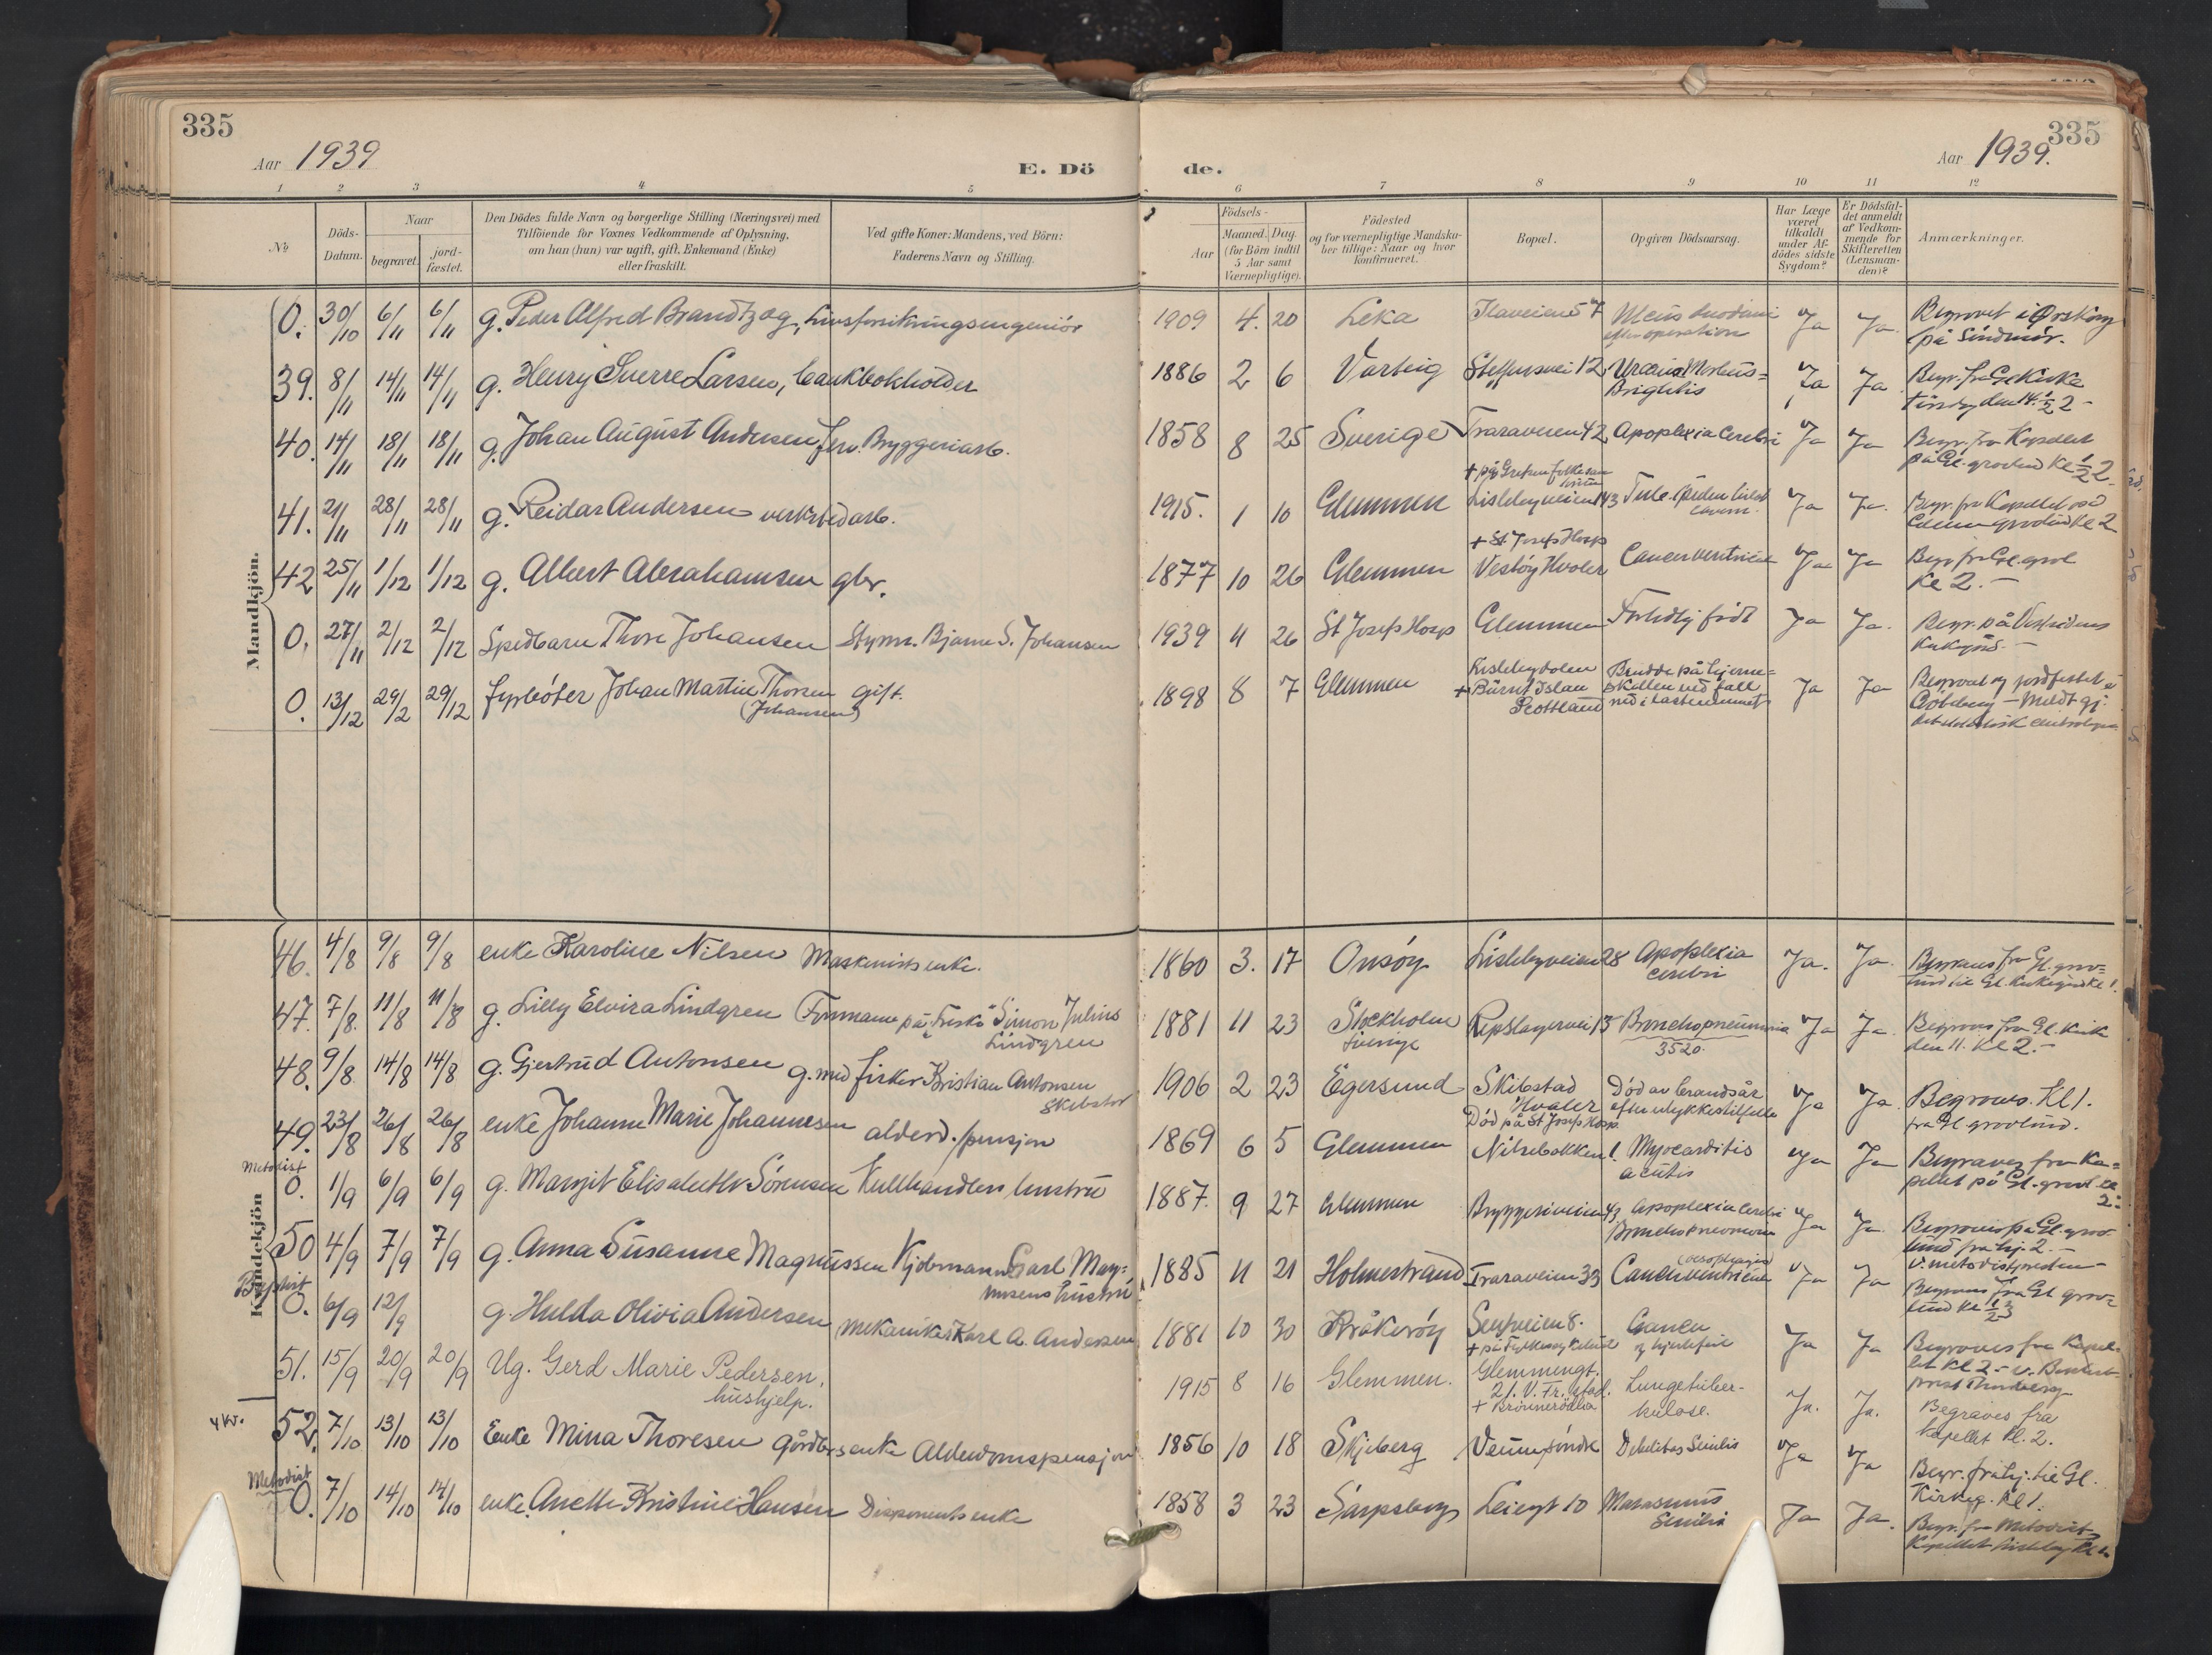 335
Aar 1939
E. Dö
1 2 3 4 5
Nr
Döds-
Datum.
Naar
begravet.
jord-
fæstet.
Den Dödes fulde Navn og borgerlige Stilling (Næringsvei) med
Tilföiende for Voxnes Vedkommende af Oplysning,
om han (hun) var ugift, gift, Enkemand (Enke)
eller fraskilt.
Ved gifte Koner: Mandens, ved Börn:
Faderens Navn og Stilling.
Mandkjön.
0. 30/10 6/11 6/11 g. Peder Alfred Brandtzæg, Livsforsikringsingeniör
39. 8/11 14/11 14/11 g. Henry Sverre Larsen, bankbokholder
40. 14/11 18/11 18/11 g. Johan August Andersen, fhv. Bryggeriarb.
41. 21/11 28/11 28/11 g. Reidar Andersen verkstedarb.
42 25/11 1/12 1/12 g. Albert Abrahamsen gbr.
0. 27/11 2/12 2/12 Spedbarn Thore Johansen Styrm. Bjarne S. Johansen
0. 13/12 29/2 29/12 fyrböter Johan Martin Thoresen gift.
(Johansen)
Kvindekjön
46. 4/8 9/8 9/8 enke Karoline Nilsen Maskinists enke.
47. 7/8. 11/8 11/8 g. Lilly Elvira Lindgren Formann på "Trosko" Simon Julius
Lindgren
48. 9/8. 14/8 14/8 g. Gjertrud Antonsen g. med fisker Kristian Antonsen
Skibstad
49. 23/8 26/8 26/8 enke Johanne Marie Johannesen alderd./pensjon
Metodist
0. 1/9 6/9 6/9 g. Margit Elisabeth Sörensen Kullhandlers hustru
50 4/9 7/9 7/9 g. Anna Susanne Magnussen Kjöbmann Carl Mag=
nusens hustru
Baptist
0. 6/9 12/9 g. Hulda Olivia Andersen mekaniker Karl A. Andersen
51. 15/9 20/9 20/9 Ug. Gerd Marie Pedersen,
hushjelp.
4 kv.
52. 7/10 13/10 13/10 Enke Mina Thoresen gårdbrs enke Alderdomspensjon
Metodist
0. 7/10 14/10 14/10 enke. Anette Kristine Hansen Disponents enke
335
Aar 1939.
de.
6 7 8 9 10 11 12
Födsels-
Aar
Maaned. Dag.
(for Börn indtil
5 Aar samt
Værnepligtige).
Födested
og for værnepligtige Mandska-
ber tillige: Naar og hvor
konfirmeret.
Bopæl.
Opgiven Dödsaarsag.
Har Læge
været
tilkaldt
under Af-
dödes sidste
Sygdom?
Er Dödsfal-
det anmeldt
af Vedkom-
mende for
Skifteretten
(Lensman-
den)?
Anmærkninger.
1909 4. 20 Leka Ilaveien 57 Ulcus duodeni
efter operation Ja Ja. Begravet i Örskog
på Sündmör.
1886 2 6 Varteig Steffensvei 12 Uræmia Morbus=
Brightis Ja Ja Begr. fra Gl. Kirke
tirsdag den 14. 1/2 2 -
1858 8 25 Sverige Traraveien 42 Apoplexia Cerebri Ja Ja Begr. fra Kapellet
på Gl. gravlund Kl 1/2 2.
1915. 1 10 Glemmen + på Grefsen folkesan
Lislebyveien 143 Ja Ja. Begr. fra Kapellet
Kl 2
1877 10 26 Glemmen + St Josefs Hosp
Vestöy Hvaler Cancer ventriculi Ja Ja Begr. fra Gl. grvl
Kl 2. -
1939 11 26 St Josefs Hosp Glemmen Fortidlig född Ja Ja. Begr. på Vestsidens
Kirkegård. -
1898 8 7 Glemmen Lislebydalen
+ Burnt Islan
Scottland Brudd på hjerne=
skallen ved fall
ned i lasterummet Ja Ja Begravet og jordfestet i
Göteborg - Meldt gj.
1860 3. 17 Onsöy Lislebyveien 28 Apoplexia
cerebri Ja. Ja. Begraves fra Gl. grav=
lund til Gl. Kirkegård Kl 1.
1881 11 23 Stockholm
Sverige Repslagervei 15 Bronchopneumonia
3520. Ja Ja. Begraves fra Gl. Kirke
den 11. Kl 2. -
1906 2 23 Egersund Skibstad
Hvaler
Död på St Josefs Hosp. Död av brandsår
efter ulykkestilfelle Ja Ja. Begraves. Kl 1.
fra Gl gravlund.
1869 6 5 Glemmen Nilsebakken 1. Myocarditis
acutis Ja Ja Begraves fra Ka=
pellet på Gl. gravl Kl
2.
1887. 9 27 Glemmen Bryggeriveien 43 Apoplexia Cerebri
Bronchopneumoni Ja Ja. Begraves på Gl. grav
lund fra hj. 2. -
v. metodistpresten -
1885 11 21 Holmestrand Traraveien 33 (oesophagus)
Cancer ventriculi Ja Ja Begraves fra Gl grav=
lund Kl 1/2 3
1881 10 30 Kråkeröy 8. Cancer
og hjertefeil Ja Ja Begraves fra Kapel=
let Kl 2 - v. Baptist
prest
1915 8 16 Glemmen. Glemmengt.
21. V. Fr. stad.
+ Brönnerödlia Lungetuber-
kulose. Ja. Ja. Begraves fra
kapellet kl. 2.
1856 10 18 Skjeberg Veumsöndre Debilitas Senilis Ja Ja Begr. fra hj. til Gl.
Kirkeg. Kl 1.
1858 3 23 Sarpsborg Leiegt 10 Marasmus
Senilis Ja Ja. Begr. fra Metodist
Kapellet Lisleby Kl